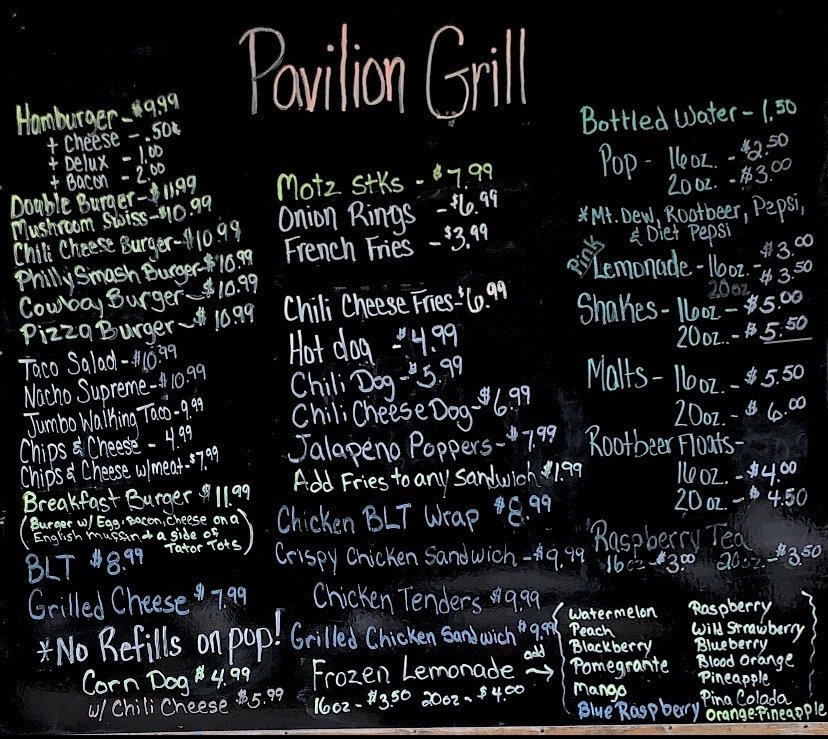 Pavilion Grill
Hamburger - $9.99
+ Cheese - .50¢
+ Delux - 1.00
+ Bacon - 2.00
Double Burger - $11.99
Mushroom Swiss - $10.99
Chili Cheese Burger - $10.99
Philly Smash Burger $10.99
Cowboy Burger - $10.99
Pizza Burger - $10.99
Taco Salad - $10.99
Nacho Supreme - $10.99
Jumbo Walking Taco - 9.99
Chips & Cheese - 4.99
Chips & Cheese w/meat - $7.99
Breakfast Burger $11.99
(Burger w/ Egg, Bacon, Cheese on a
English Muffin & a side of
Tator Tots)
BLT $8.99
Grilled Cheese $7.99
*No Refills on pop!
Corn Dog $4.99
w/ Chili Cheese $5.99
Motz Stks - $7.99
Onion Rings - $6.99
French Fries - $3.99
Chili Cheese Fries - $6.99
Hot dog - $4.99
Chili Dog - $5.99
Chili Cheese Dog - $6.99
Jalapeno Poppers - $7.99
Add Fries to any Sandwich $1.99
Chicken BLT Wrap $8.99
Crispy Chicken Sandwich - $9.99
Chicken Tenders $9.99
Grilled Chicken Sandwich $9.99
Frozen Lemonade add →
16oz - $3.50 20oz - $4.00
Bottled Water - 1.50
Pop - 16oz. - $2.50
20oz. - $3.00
*Mt. Dew, Rootbeer, Pepsi,
& Diet Pepsi
Pink Lemonade - 16oz. - $3.00
20oz $3.50
Shakes - 16oz - $5.00
20oz. - $5.50
Malts - 16oz. - $5.50
20oz. - $6.00
Rootbeer Floats -
16oz. - $4.00
20oz. - $4.50
Raspberry Tea
16oz - $3.00 20oz. - $3.50
Watermelon
Peach
Blackberry
Pomegrante
Mango
Blue Raspberry
Raspberry
Wild Strawberry
Blueberry
Blood Orange
Pineapple
Pina Colada
Orange-Pineapple